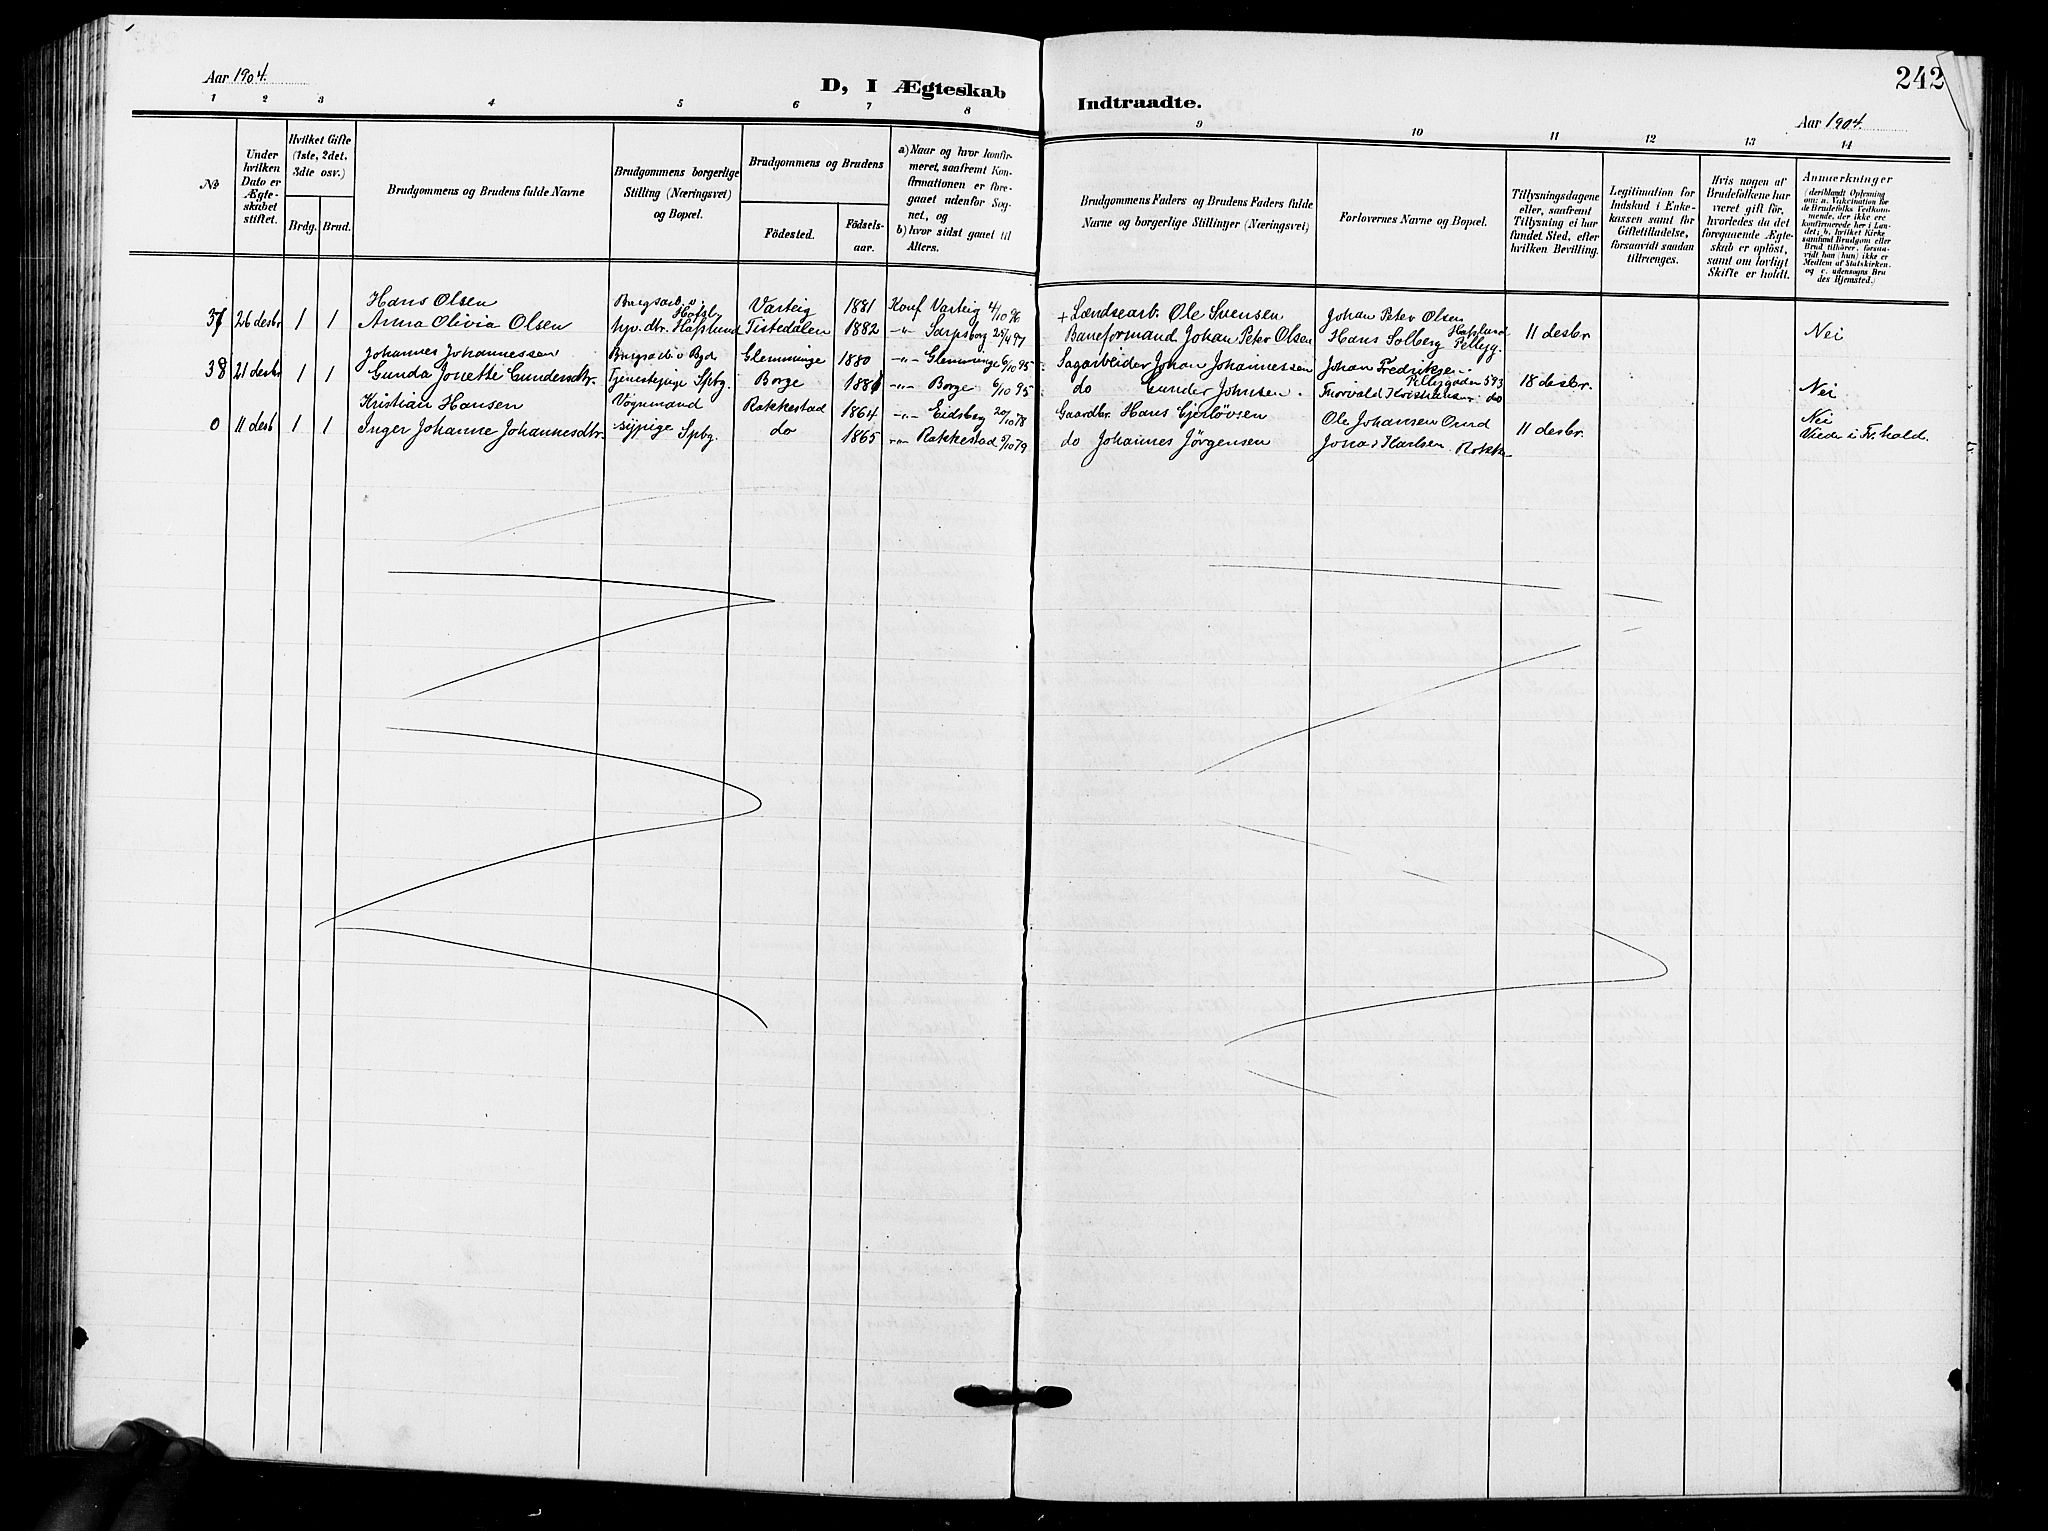 242
Aar 1904.
D, I Ægteskab
Indtraadte.
Aar 1904.
1 2 3 4 5 6 7 8
9 10 11 12 13 14
No
Under hvilken Dato er Ægteskabet stiftet.
Hvilket Gifte (1ste, 2det, 3die osv.)
Brdg. Brud.
Brudgommens og Brudens fulde Navne
Brudgommens borgerlige Stilling (Næringsvei) og Bopæl.
Brudgommens og Brudens
Födested. Födsels-aar.
a) Naar og hvor konfirmeret, saafremt Konfirmationen er foregaaet udenfor Sognet, og
b) hvor sidst gaaet til Alters.
Brudgommens Faders og Brudens Faders fulde Navne og borgerlige Stillinger (Næringsvei)
Forlovernes Navne og Bopæl.
Tillysningsdagene eller, saafremt Tillysning ei har fundet Sted, efter hvilken Bevilling.
Legitimation for Indskud i Enkekassen samt for Giftetilladelse, forsaavidt saadan tiltrænges.
Hvis nogen af Brudefolkene har været gift för, hvorledes da det foregaaende Ægteskab er oplöst, samt om lovligt Skifte er holdt.
Anmærkninger
(deriblandt Oplysning om: a. Vakcination for de Brudefolks Vedkommende, der ikke ere konfirmerede her i Landet; b. hvilket Kirkesamfund Brudgom eller Brud tilhörer, forsaavidt han (hun) ikke er Medlem af Statskirken og c. udensogns Brudes Hjemsted.)
Hans Olsen Varteig 1881 Konf Varteig 4/10 96 + Lændsearb. Ole Svensen Johan Peter Olsen
37 26 desbr 1 1 Anna Olivia Olsen Hafslund Tistedalen 1882 -"- Sarpsborg 25/4 97 Baneformand Johan Peter Olsen Hans Solberg 11 desbr. Nei
Johannes Johannessen Glemminge 1880 -"- Glemminge 6/10 95 Sagarbeider Johan Johannessen Johan Fredriksen
38 21 desbr 1 1 Gunda Jonette Gundersdtr. Tjenestepige Spbg. Borge 1881 -"- Borge 6/10 95 do Gunder Johnsen Thorvald Kristiansen do 18 desbr. Nei
Kristian Hansen Vognmand Rakkestad 1864 -"- Eidsberg 20/10 78 Gaardbr. Hans Gjerlövsen Ole Johansen Nei
0 11 desb 1 1 Inger Johanne Johannesdtr. sypige Spbg. do 1865 -"- Rakkestad 5/10 79 do Johannes Jörgensen Jonas Karlsen Rakke 11 desbr. Viede i Fr.hald.